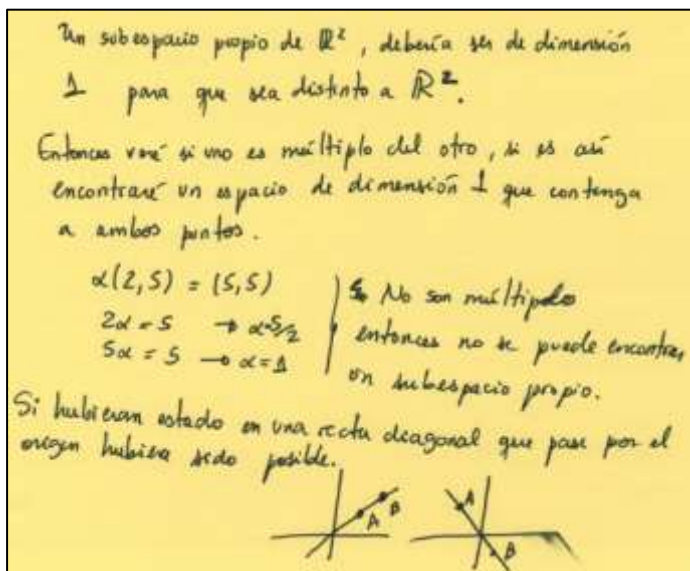 Un subespacio propio de ℝ², debería ser de dimensión
1 para que sea distinto a ℝ².
Entonces veré si uno es múltiplo del otro, si es así
encontraré un espacio de dimensión 1 que contenga
a ambos puntos.
α(2,5) = (5,5)
2α = 5 → α=5/2
5α = 5 → α=1
No son múltiplos
entonces no se puede encontrar
un subespacio propio.
Si hubieran estado en una recta diagonal que pase por el
origen hubiera sido posible.
A B
A B